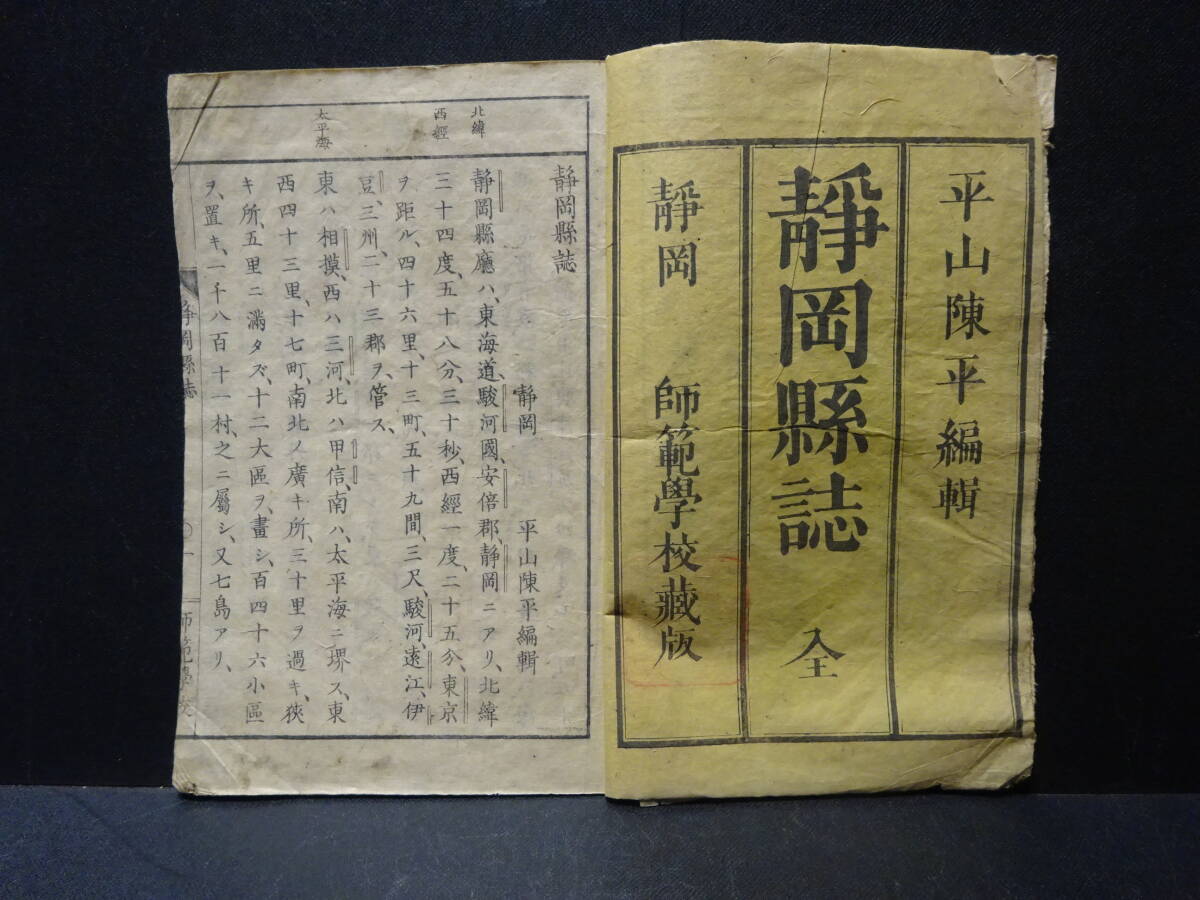 平山陳平編輯
靜岡縣誌 全
靜岡 師範學校藏版
北緯
西經
太平海
静岡縣誌
静岡 平山陳平編輯
静岡縣廳ハ、東海道、駿河國、安倍郡、静岡ニアリ、北緯
三十四度、五十八分、三十秒、西經一度、二十五分、東京
ヲ距ル、四十六里、十三町、五十九間、三尺、駿河、遠江、伊
豆、三州、二十三郡ヲ、管ス、
東ハ相摸、西ハ三河、北ハ甲信、南ハ、太平海ニ堺ス、東
西四十三里、十七町、南北ノ廣キ所、三十里ヲ過キ、狹
キ所、五里ニ滿タズ、十二大區ヲ、畫シ、百四十六小區
ヲ、置キ、一千八百十一村、之ニ屬シ、又七島アリ、
静岡縣誌 〇一 師範學校